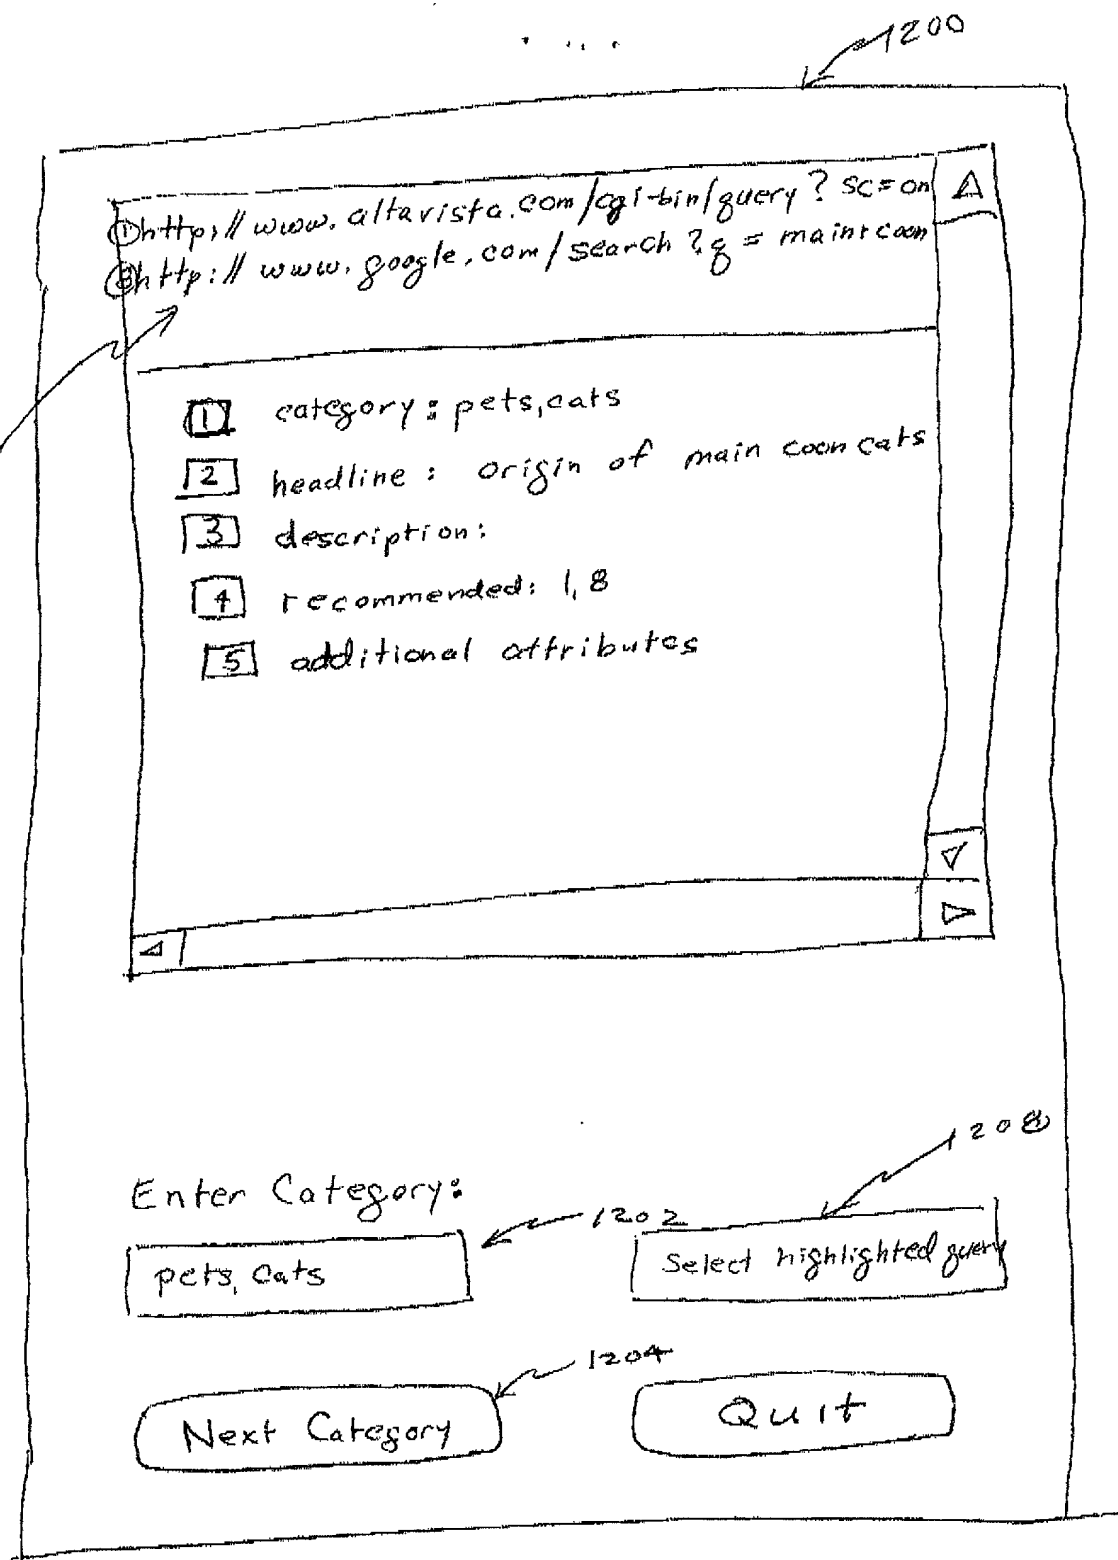 1200
① http://www.altavista.com/cgi-bin/query?sc=on
② http://www.google.com/search?q=main+coon
1 category: pets, cats
2 headline: origin of main coon cats
3 description:
4 recommended: 1, 8
5 additional attributes
1208
Enter Category:
1202
pets, cats
Select highlighted query
1204
Next Category
Quit